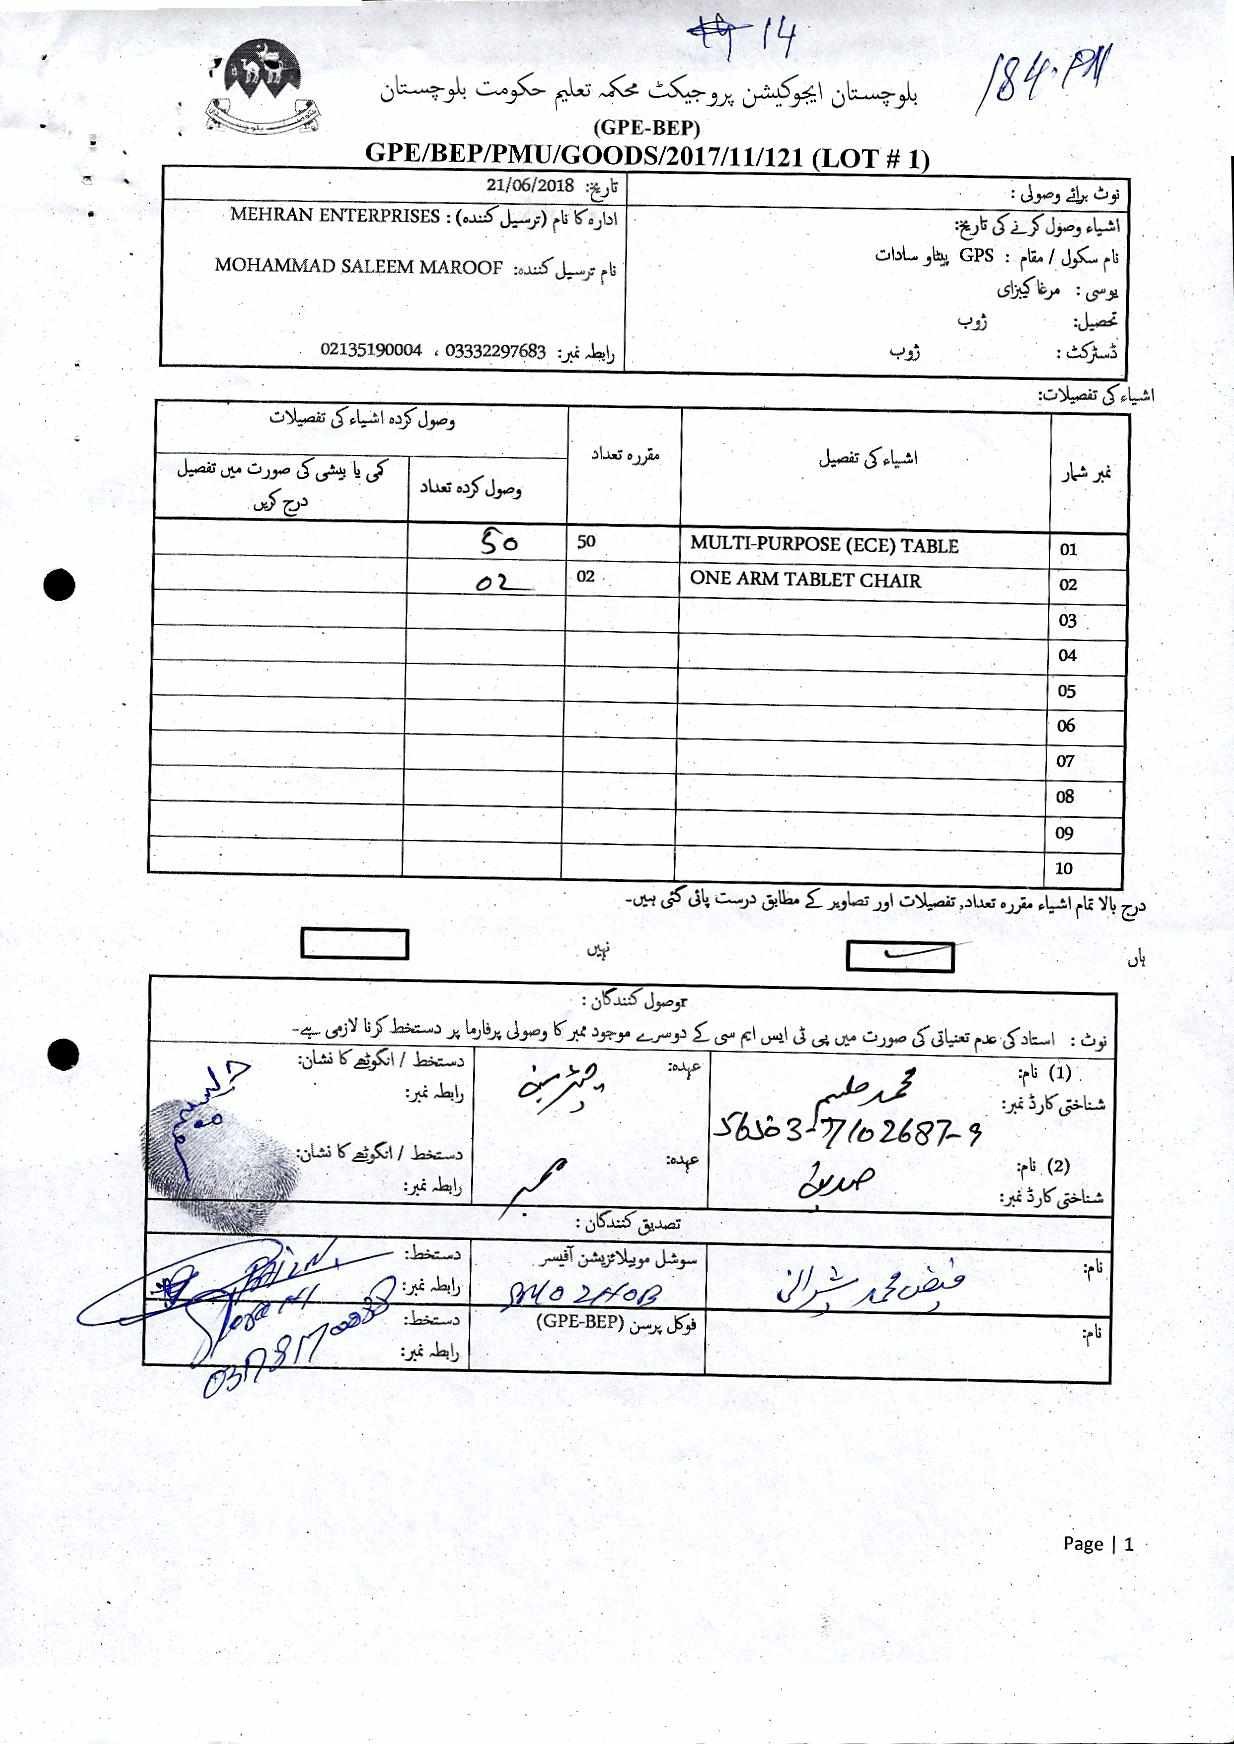 14
184-PM
بلوچستان ایجوکیشن پروجیکٹ محکمہ تعلیم حکومت بلوچستان
(GPE-BEP)
GPE/BEP/PMU/GOODS/2017/11/121 (LOT # 1)
نوٹ برائے وصولی :
تاریخ: 21/06/2018
اشیاء وصول کرنے کی تاریخ:
ادارہ کا نام (ترسیل کنندہ) : MEHRAN ENTERPRISES
نام سکول / مقام : GPS پیٹاو سادات
نام ترسیل کنندہ: MOHAMMAD SALEEM MAROOF
یوسی : مرغا کبزای
تحصیل: ژوب
ڈسٹرکٹ : ژوب
رابطہ نمبر: 03332297683 ، 02135190004
اشیاء کی تفصیلات:
نمبر شمار اشیاء کی تفصیل مقررہ تعداد وصول کردہ اشیاء کی تفصیلات
وصول کردہ تعداد کمی یا بیشی کی صورت میں تفصیل درج کریں
01 MULTI-PURPOSE (ECE) TABLE 50 50
02 ONE ARM TABLET CHAIR 02 02
03
04
05
06
07
08
09
10
درج بالا تمام اشیاء مقررہ تعداد, تفصیلات اور تصاویر کے مطابق درست پائی گئی ہیں۔
ہاں نہیں
rوصول کنندگان :
نوٹ : استاد کی عدم تعنیاتی کی صورت میں پی ٹی ایس ایم سی کے دوسرے موجود ممبر کا وصولی پرفارما پر دستخط کرنا لازمی ہے۔
(1) نام: محمد حلیم عہدہ: چیئرمین دستخط / انگوٹھے کا نشان:
شناختی کارڈ نمبر: 56303-7102687-9 رابطہ نمبر:
(2) نام: عہدہ: ممبر دستخط / انگوٹھے کا نشان:
شناختی کارڈ نمبر: رابطہ نمبر:
تصدیق کنندگان :
نام: فیض محمد شیرانی سوشل موبیلائزیشن آفیسر دستخط:
رابطہ نمبر:
نام: فوکل پرسن (GPE-BEP) دستخط:
رابطہ نمبر:
Page | 1